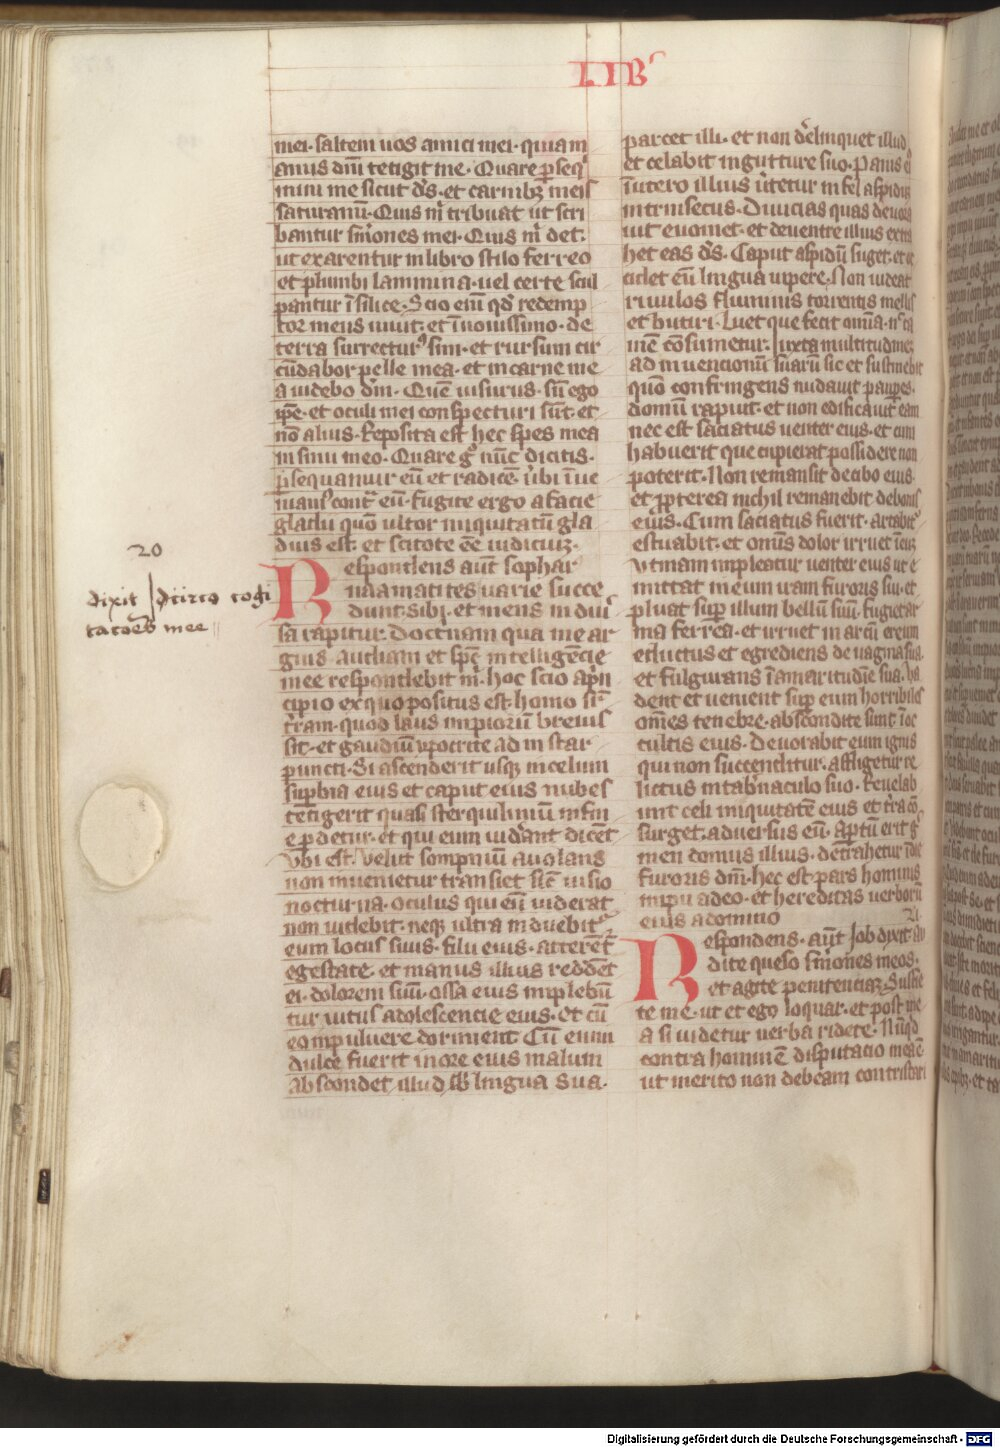 LIB
mei· saltem uos amici mei· quia m
anus dñi tetigit me· Quare ꝑseq
mini me sicut ds̄· et carnibꝫ meis
saturamī· Quis m̄ tribuat ut scri
bantur s̄mones mei· Quis m̄ det·
ut exarentur in libro stilo ferreo
et plumbi lammina· uel certe scul
pantur ī silice· Scio eim̄ qd̄ redemp
tor meus uiuit· et ī nouissimo· de
terra surrectur᷒ sim· et rursum cir
cūdabor pelle mea· et in carne me
a uidebo dm̄· Quē uisurus· sū ego
ip̄e· et oculi mei conspecturi sūt· et
nō alius· Reposita est hec spes mea
in sinu meo· Quare g͛ nūc dicitis·
ꝑsequamur eū et radicē· ubi īue
niam᷒ contͣ eū· fugite ergo a facie
gladii quō ultor iniquitatū gla
dius est· et scitote eē iudiciū·
20
Respondens aūt sophar
naamatites uarie succe
dunt· sibi· et mens in diu͛
dixit | iccirco cogi
tacōes mee
sa rapitur· Doctrinam qua me ar
guis audiam et spc̄ intelligēcie
mee respondebit m̄· hoc scio a p̄n
cipio ex quo positus est· homo suͬ
tͬram· quod laus impiorū breuis
sit· et gaudiū ypocrite ad instar
puncti· Si ascenderit usqꝫ in celum
suꝑbia eius et caput eius nubes
tetigerit quasi sterquiliniū in fin
e ꝑdetur· et qui eum uid͛ant dicēt
vbi est· Velut sompniū auolans
non inuenietur transiet sic̄ uisio
nocturna· oculus qui eū uiderat
non uidebit· neqꝫ ultra induebit᷒
eum locus suus· filii eius· atterēt͛
egestate· et manus illius reddēt
ei· dolorem suū· ossa eius implebū
tur uitiis adolescencie eius· et cū
eo in puluere dormient Cū enim
dulce fuerit in ore eius malum
abscondet illud s̄b lingua sua·
parcet illi· et non d͛elinquet illud
et celabit in gutture suo· Panis ei᷒
ī utero illius u͛tetur in fel aspidū
intrinsecus· Diuicias quas deuora
uit euomet· et de uentre illius extra
het eas ds̄· Caput aspidū suget· et oc
cidet eū lingua uipere· Non uideat
riuulos fluminis torrentis mellis
et butiri· Luet que fecit omīa· nͨ ta
mē cōsumetur· Iuxta multitudinē
adinuencionū suarū sic et sustinebit
quō confringens nudauit pauꝑes·
domū rapuit· et non edificauit eam
nec est saciatus uenter eius· et cum
habuerit que cupierat possidere non
poterit· Non remansit de cibo eius·
et ꝓpterea nichil remanebit de bonis
eius· Cum saciatus fuerit· artabit᷒
estuabit· et omīs dolor irruet ī eū·
Vtinam impleatur uenter eius ut e
mittat in eum iram furoris sui· et
pluat suꝑ illum bellū suū· fugiet ar
ma ferrea· et irruet in arcū ereum
eductus et egrediens de uagina sua·
et fulgurans ī amaritudie sua· Va
dent et uenient suꝑ eum horribiles
omēs tenebre· abscondite sunt ī oc
cultis eius· Deuorabit eum ignis
qui non succenditur· affligetur re
lictus in tab͛naculo suo· Reuelab
unt celi iniquitatē eius et t͛ra cō
surget· aduersus eū· Aꝑtū erit g͛
men domus illius· det͛rahetur ī die
furoris dn̄i· hec est· pars hominis
impii a deo· et hereditas uerborū
eius a domino
21
Respondens· aūt Iob dixit au
dite queso s̄mones meos·
et agite penitenciaꝫ· Sustine
te me· ut et ego loquar· et post me
a si uidetur uerba ridete· Nūqd
contra hominē disputacio mea ē
ut merito non debeam contristari
Digitalisierung gefördert durch die Deutsche Forschungsgemeinschaft - DFG